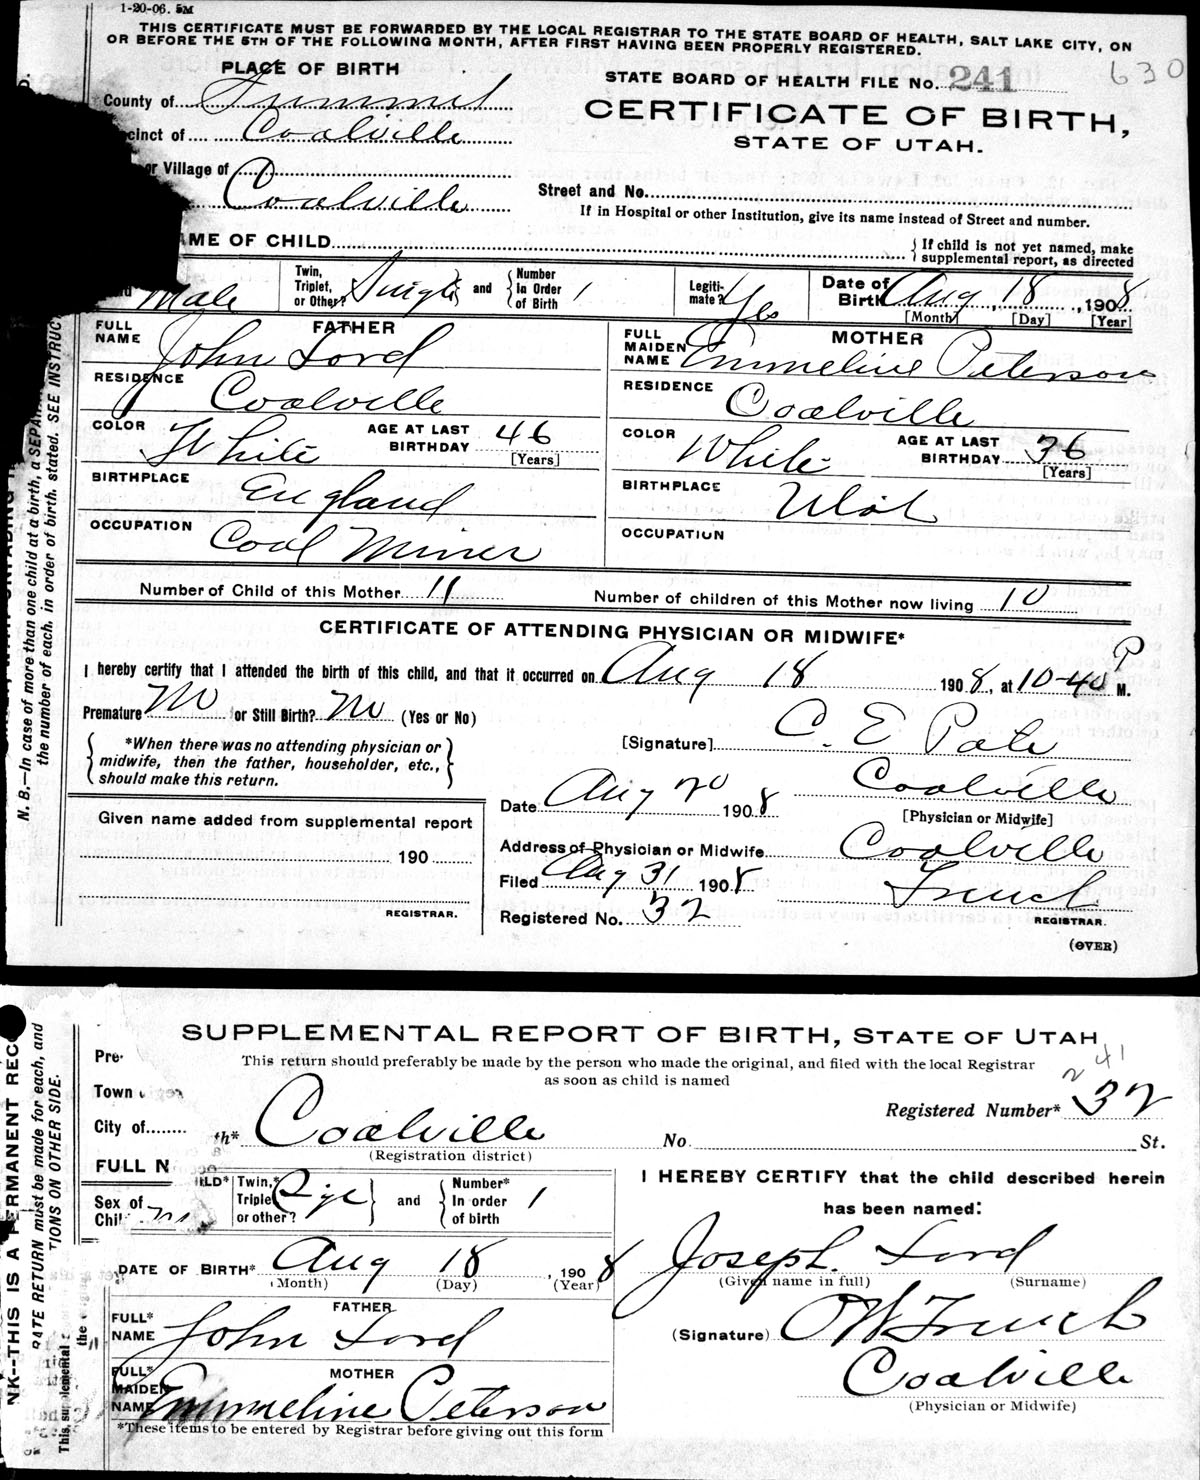 1-20-06. 5M
THIS CERTIFICATE MUST BE FORWARDED BY THE LOCAL REGISTRAR TO THE STATE BOARD OF HEALTH, SALT LAKE CITY, ON
OR BEFORE THE 5TH OF THE FOLLOWING MONTH, AFTER FIRST HAVING BEEN PROPERLY REGISTERED.
PLACE OF BIRTH
STATE BOARD OF HEALTH FILE No. 241 630
County of Summit
CERTIFICATE OF BIRTH,
cinct of Coalville
STATE OF UTAH.
or Village of
Coalville
Street and No.
If in Hospital or other Institution, give its name instead of Street and number.
AME OF CHILD
If child is not yet named, make
supplemental report, as directed
Male
Twin, Triplet, or Other? Single and Number In Order of Birth 1
Legiti-mate? Yes
Date of Birth Aug 18, 1908
[Month] [Day] [Year]
FATHER
FULL NAME John Ford
RESIDENCE Coalville
COLOR White AGE AT LAST BIRTHDAY 46 [Years]
BIRTHPLACE England
OCCUPATION Coal Miner
MOTHER
FULL MAIDEN NAME Emmeline Peterson
RESIDENCE Coalville
COLOR White AGE AT LAST BIRTHDAY 36 [Years]
BIRTHPLACE Utah
OCCUPATION
Number of Child of this Mother 11 Number of children of this Mother now living 10
CERTIFICATE OF ATTENDING PHYSICIAN OR MIDWIFE*
I hereby certify that I attended the birth of this child, and that it occurred on Aug 18 1908, at 10-40 P M.
Premature No or Still Birth? No (Yes or No)
*When there was no attending physician or
midwife, then the father, householder, etc.,
should make this return.
[Signature] C. E Pate
Coalville
Date Aug 20 1908
[Physician or Midwife]
Given name added from supplemental report
190
REGISTRAR.
Address of Physician or Midwife Coalville
Filed Aug 31 1908 French
Registered No. 32
REGISTRAR.
(OVER)
N. B.—In case of more than one child at a birth, a SEPARA
the number of each, in order of birth, stated. SEE INSTRUC
SUPPLEMENTAL REPORT OF BIRTH, STATE OF UTAH
This return should preferably be made by the person who made the original, and filed with the local Registrar
as soon as child is named
241
Pre
Town
Registered Number* 32
City of
th* Coalville No. St.
(Registration district)
FULL N
ILD*
Sex of Chil M
Twin, Triplet or other? and Number* In order of birth 1
I HEREBY CERTIFY that the child described herein
has been named:
DATE OF BIRTH* Aug 18, 1908
(Month) (Day) (Year)
Joseph Ford
(Given name in full) (Surname)
FATHER
FULL* NAME John Ford
(Signature) O W French
Coalville
(Physician or Midwife)
MOTHER
FULL* MAIDEN NAME Emmeline Peterson
*These items to be entered by Registrar before giving out this form
NK--THIS IS A PERMANENT REC
RATE RETURN must be made for each, and
TIONS ON OTHER SIDE.
This, supplemental
the